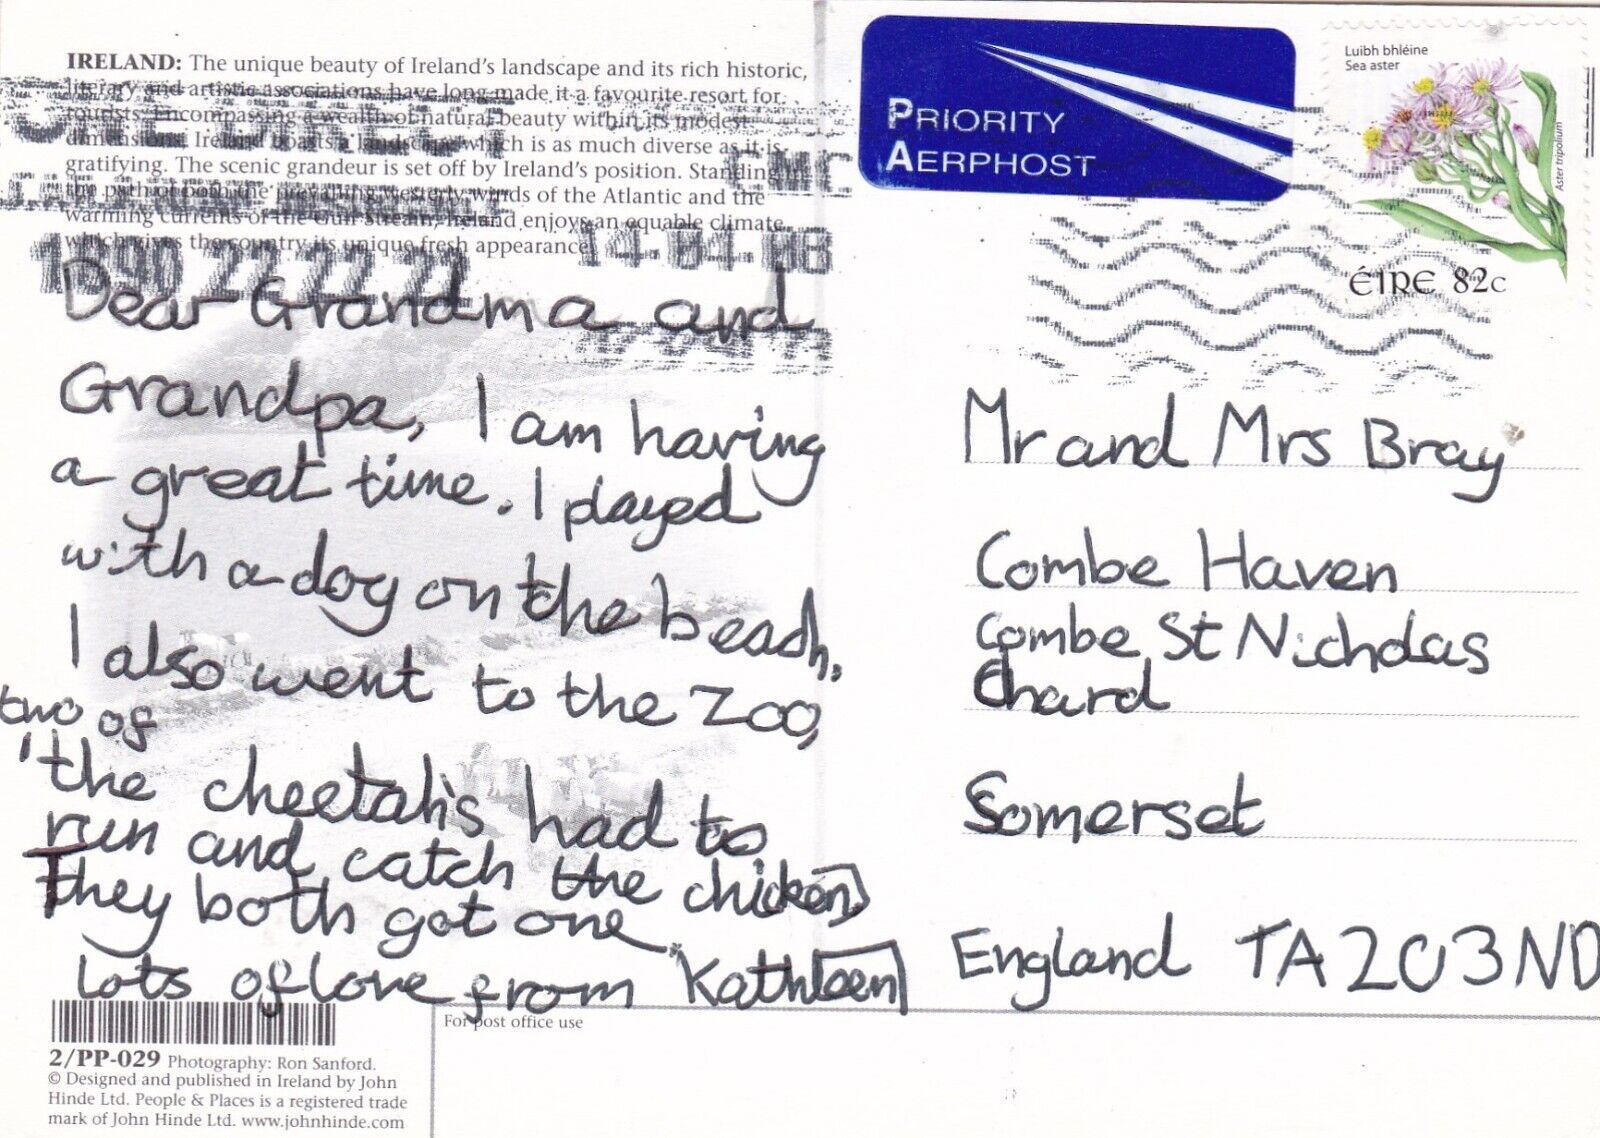 IRELAND: The unique beauty of Ireland's landscape and its rich historic,
literary and artistic associations have long made it a favourite resort for
tourists. Encompassing a wealth of natural beauty within its modest
dimensions, Ireland boasts a landscape which is as much diverse as it is
gratifying. The scenic grandeur is set off by Ireland's position. Standing in
the path of both the prevailing westerly winds of the Atlantic and the
warming currents of the Gulf Stream, Ireland enjoys an equable climate,
which gives the country its unique fresh appearance.
1890 22 22 22
Dear Grandma and
Grandpa, I am having
a great time. I played
with a dog on the beach.
I also went to the Zoo,
two of
the cheetah's had to
run and catch the chicken
They both got one
lots of love from Kathleen
2/PP-029 Photography: Ron Sanford.
© Designed and published in Ireland by John
Hinde Ltd. People & Places is a registered trade
mark of John Hinde Ltd. www.johnhinde.com
For post office use
PRIORITY
AERPHOST
Luibh bhléine
Sea aster
Aster tripolium
ÉIRE 82c
Mr and Mrs Bray
Combe Haven
Combe St Nicholas
Chard
Somerset
England TA203ND